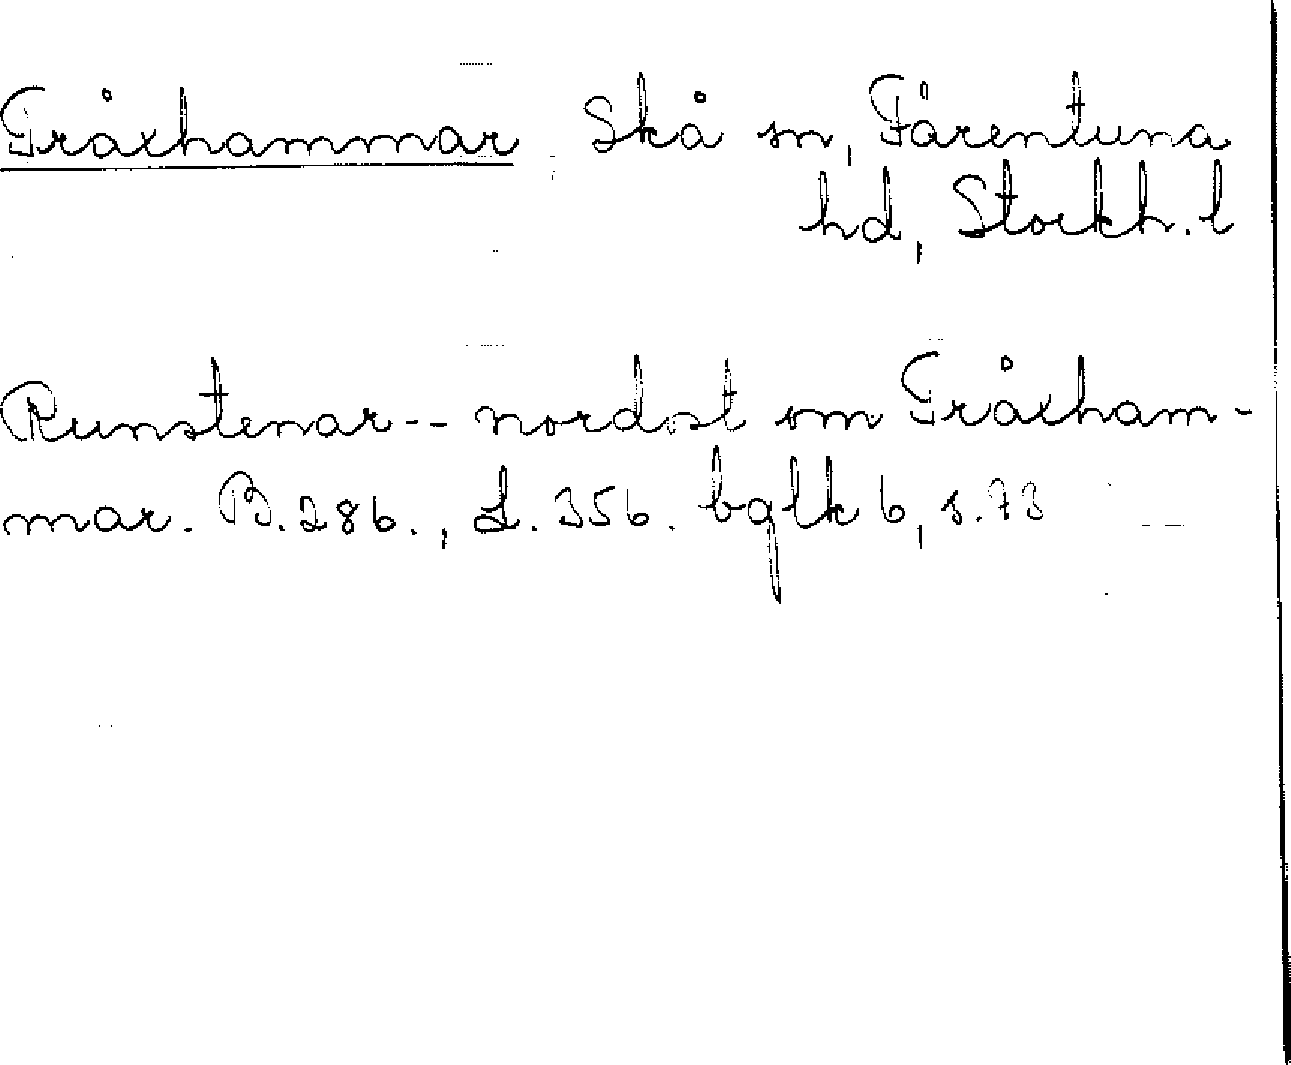 Tråxhammar, Skå sn, Färentuna
hd, Stockh. l
Runstenar-- nordost om Tråxham-
mar. B. 286., L. 356. bglk 6, s. 73